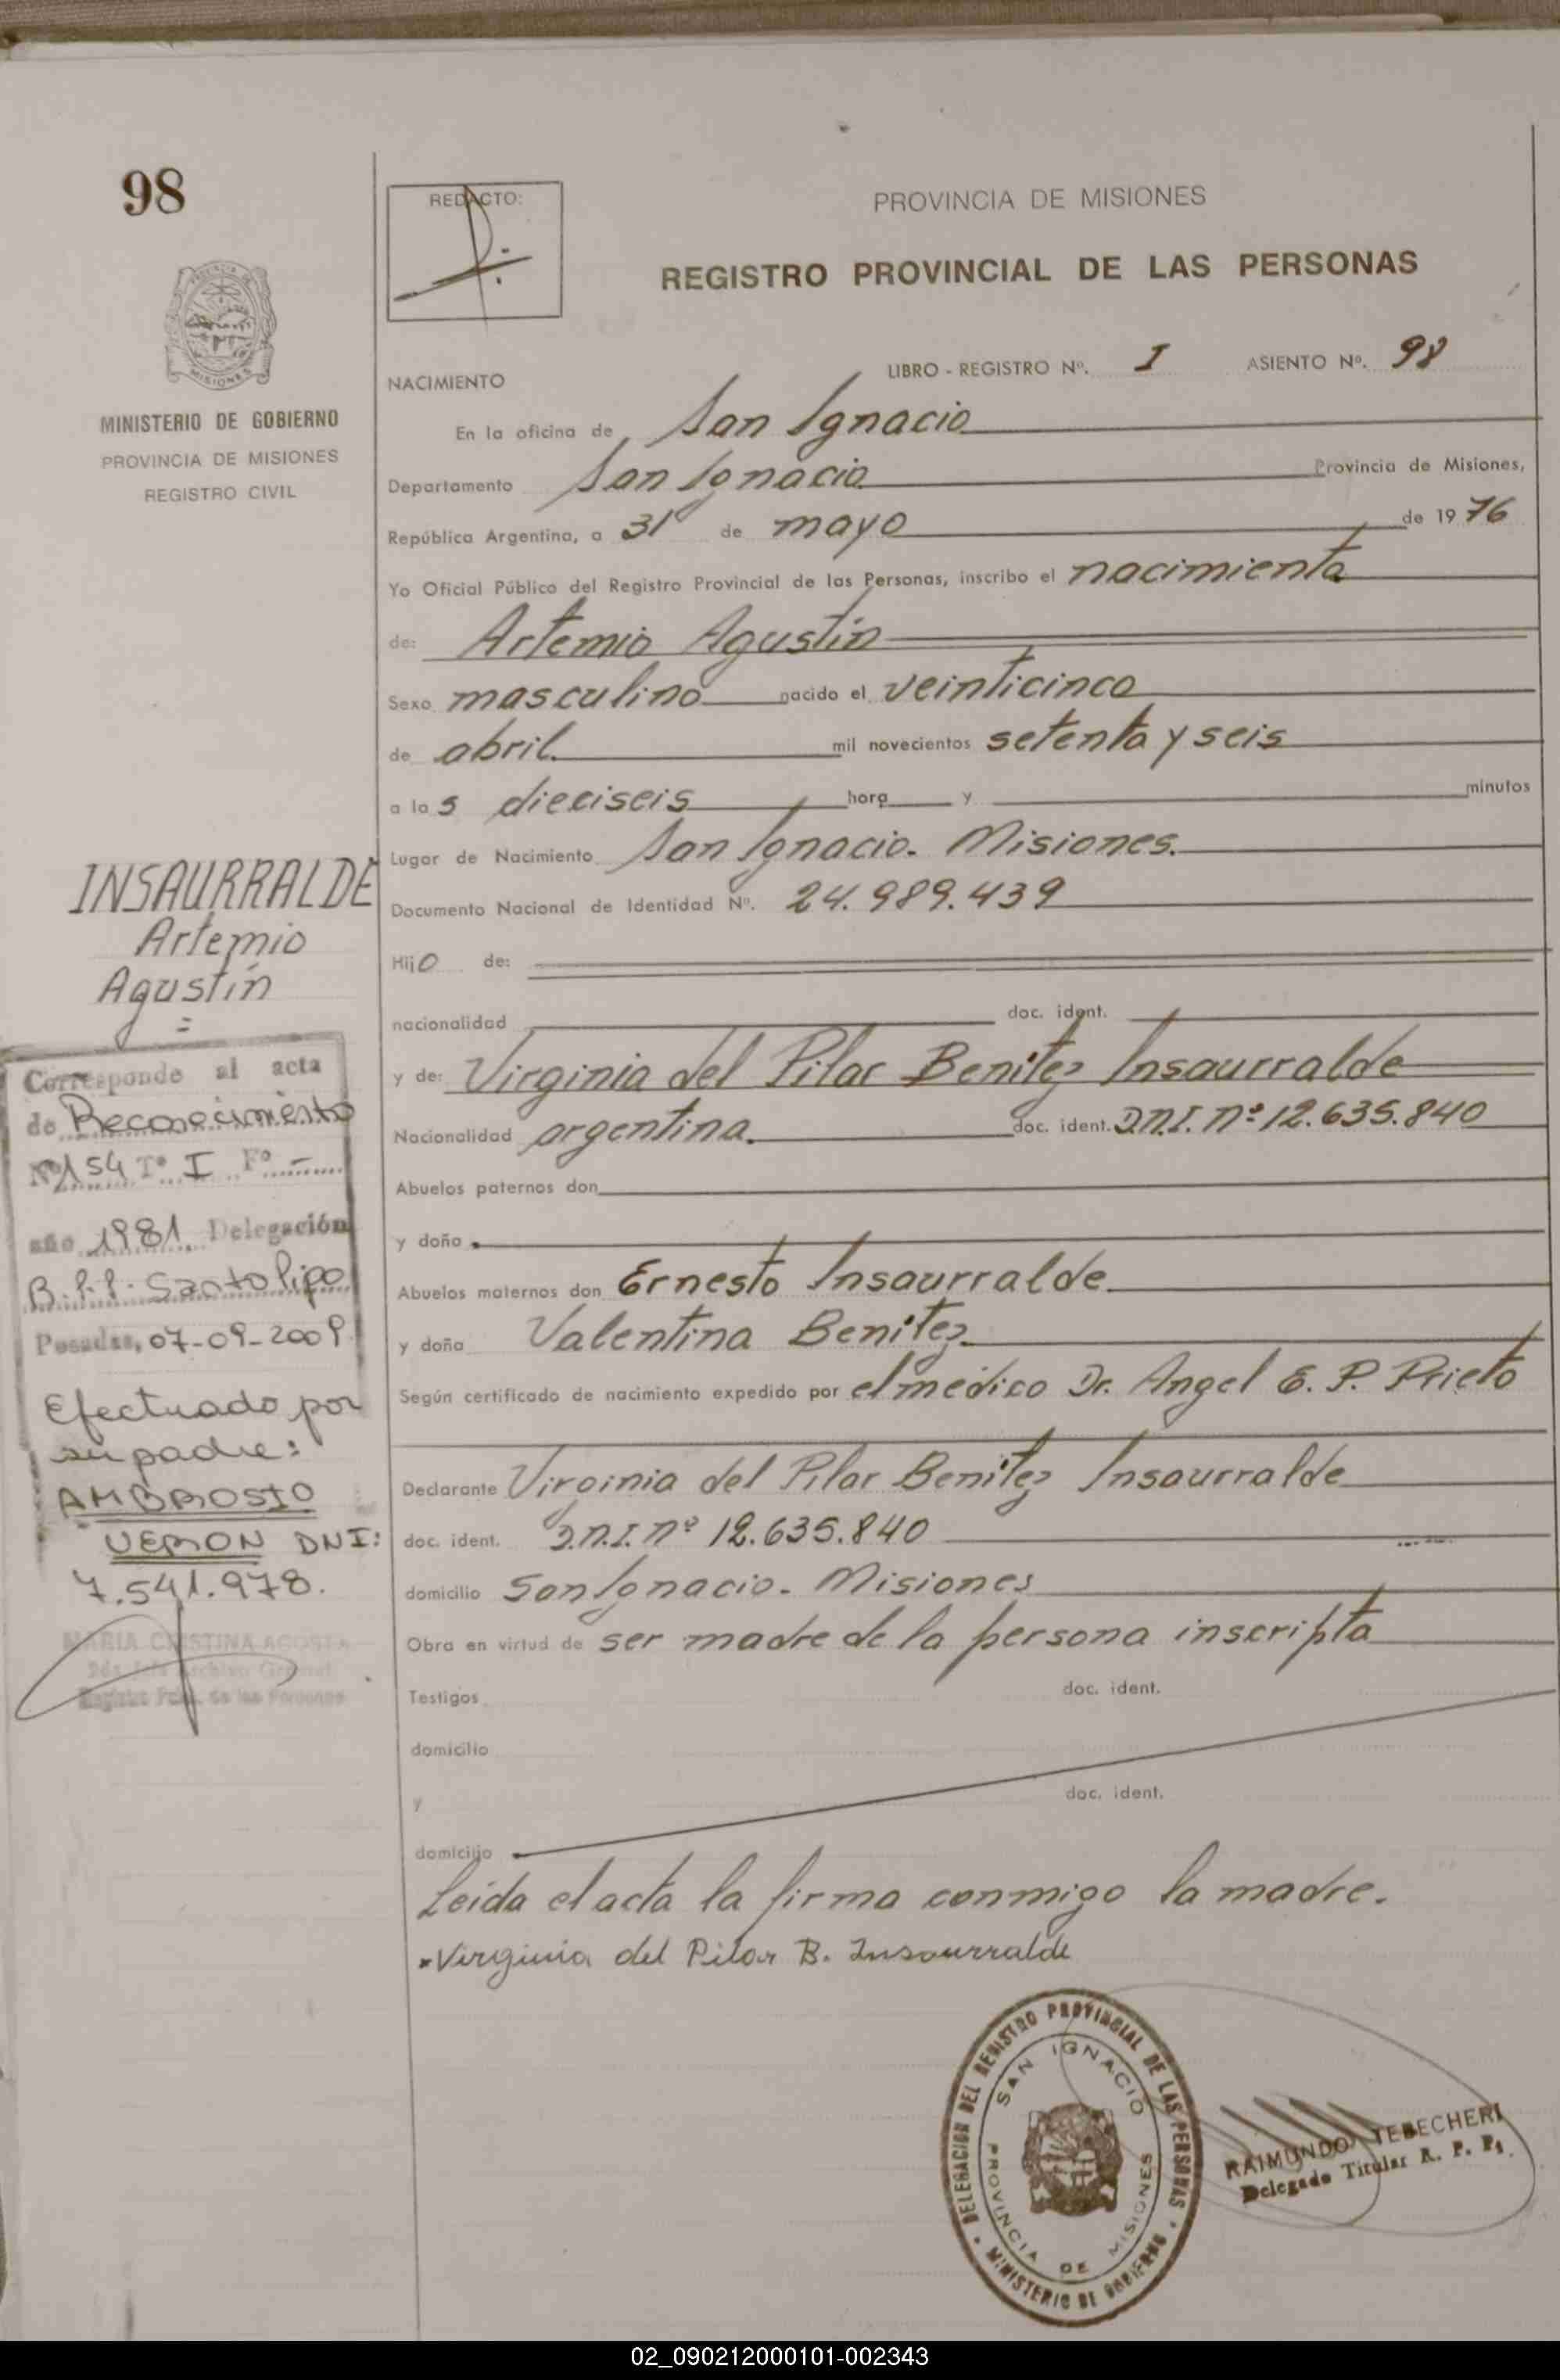 98
REDACTO:
PROVINCIA DE MISIONES
REGISTRO PROVINCIAL DE LAS PERSONAS
MISIONES
MINISTERIO DE GOBIERNO
PROVINCIA DE MISIONES
REGISTRO CIVIL
NACIMIENTO LIBRO - REGISTRO Nº. I ASIENTO Nº. 98
En la oficina de San Ignacio
Departamento San Ignacio Provincia de Misiones,
República Argentina, a 31 de mayo de 1976
Yo Oficial Público del Registro Provincial de las Personas, inscribo el nacimiento
de: Artemio Agustín
Sexo masculino nacido el veinticinco
de abril mil novecientos setenta y seis
a las dieciseis hora y minutos
Lugar de Nacimiento San Ignacio. Misiones.
Documento Nacional de Identidad Nº. 24.989.439
Hijo de:
nacionalidad doc. ident.
y de: Virginia del Pilar Benitez Insaurralde
Nacionalidad argentina. doc. ident. D.N.I. Nº 12.635.840
Abuelos paternos don
y doña
Abuelos maternos don Ernesto Insaurralde
y doña Valentina Benitez
Según certificado de nacimiento expedido por el médico Dr. Angel E. P. Prieto
Declarante Virginia del Pilar Benitez Insaurralde
doc. ident. D.N.I. Nº 12.635.840
domicilio San Ignacio. Misiones
Obra en virtud de ser madre de la persona inscripta
Testigos doc. ident.
domicilio
y doc. ident.
domicilio
Leída el acta la firma conmigo la madre.
Virginia del Pilar B. Insaurralde
INSAURRALDE
Artemio
Agustín
Corresponde al acta
de Reconocimiento
Nº 154 Tº I Fº -
año 1981 Delegación
Posadas, 07-09-2009
Efectuado por
su padre:
AMBROSIO
VERON DNI:
7.541.978.
MARIA CRISTINA ACOSTA
Archivo General
de las Personas
DELEGACION DEL REGISTRO PROVINCIAL DE LAS PERSONAS
MINISTERIO DE GOBIERNO
SAN IGNACIO
PROVINCIA DE MISIONES
RAIMUNDO TEBECHERI
Delegado Titular R. P. P.
02_090212000101-002343